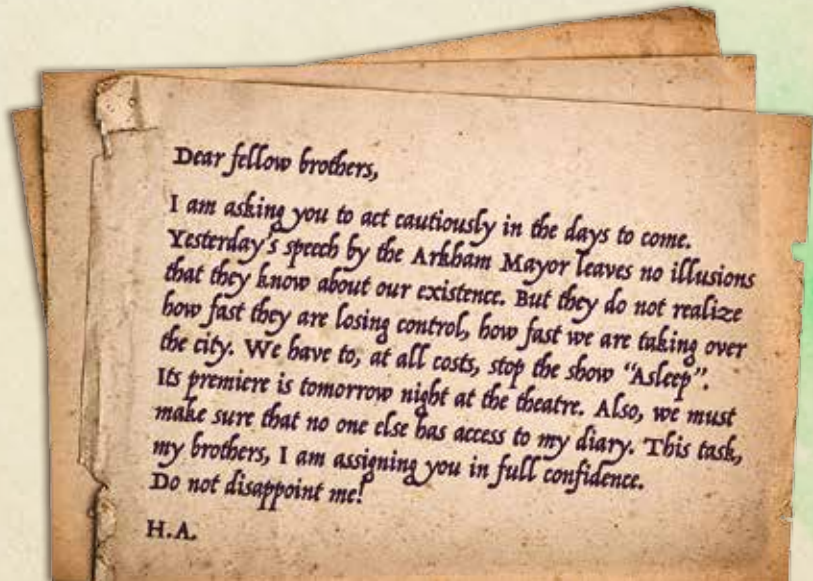 Dear fellow brothers,
I am asking you to act cautiously in the days to come.
Yesterday's speech by the Arkham Mayor leaves no illusions
that they know about our existence. But they do not realize
how fast they are losing control, how fast we are taking over
the city. We have to, at all costs, stop the show "Asleep".
Its premiere is tomorrow night at the theatre. Also, we must
make sure that no one else has access to my diary. This task,
my brothers, I am assigning you in full confidence.
Do not disappoint me!
H.A.